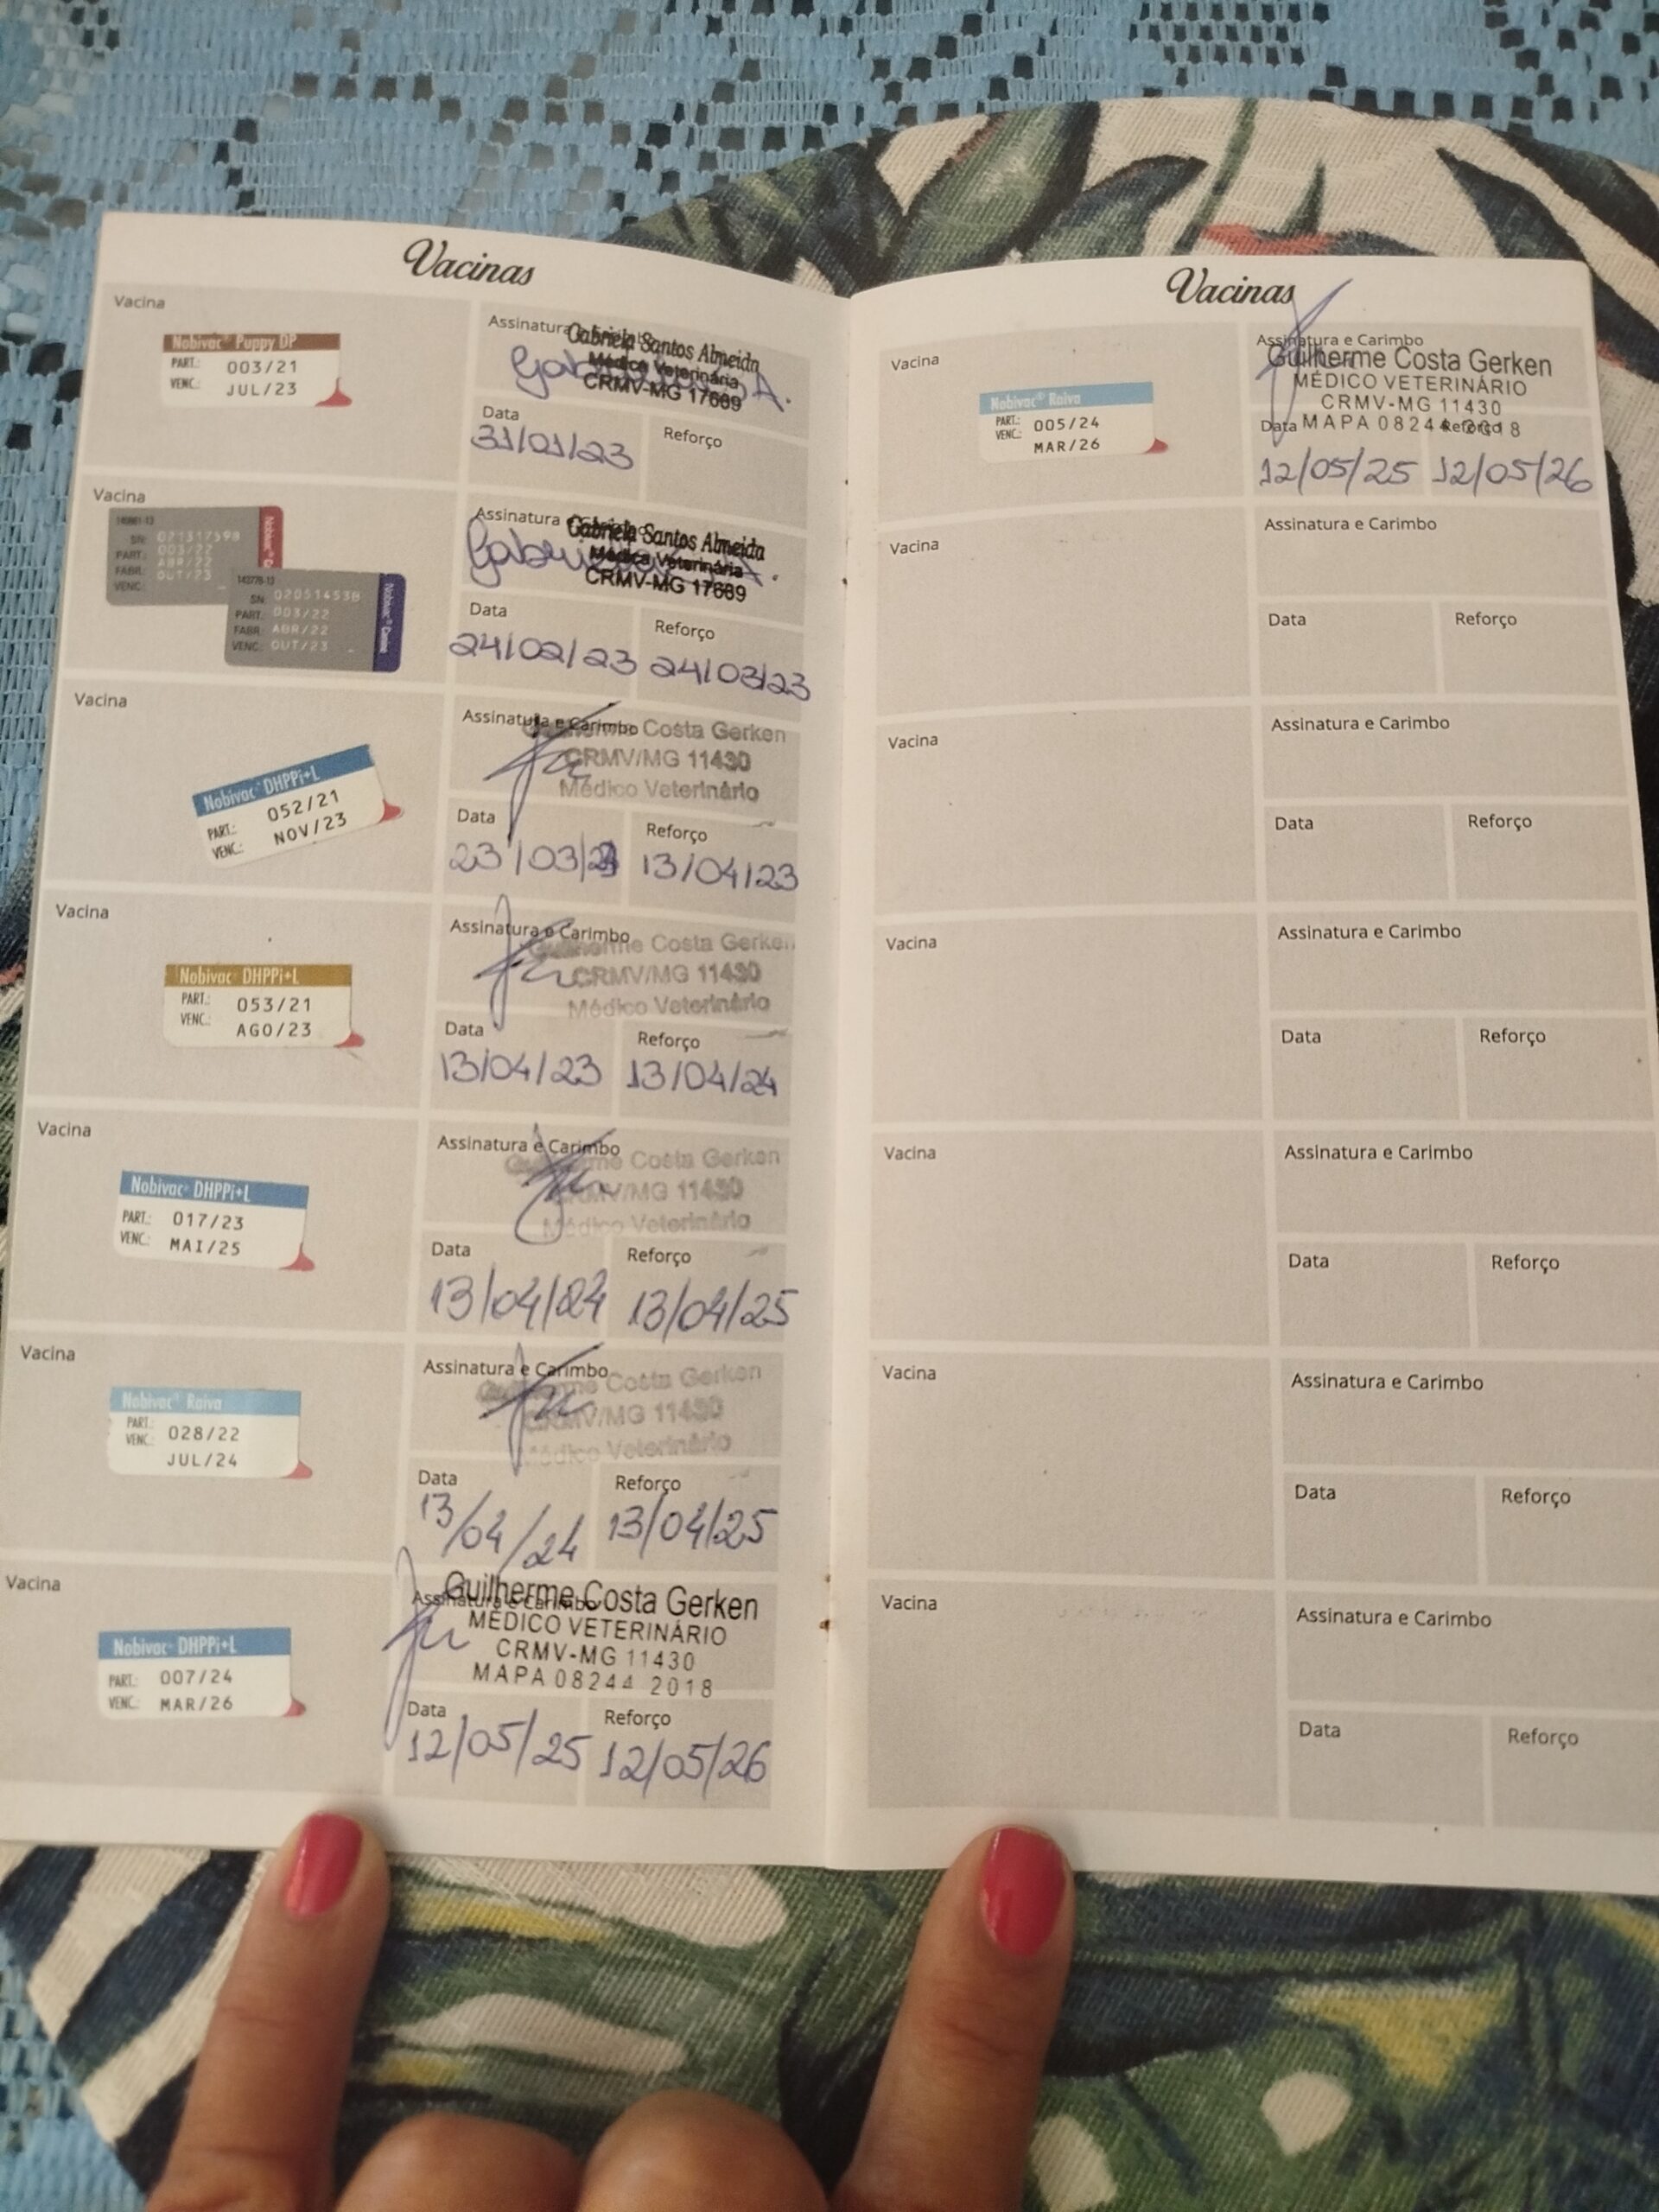 Vacinas
Vacina
Nobivac® Puppy DP
PART.: 003/21
VENC.: JUL/23
Assinatura
Gabriela Santos Almeida
Médica Veterinária
CRMV-MG 17689
Data
Reforço
31/01/23
Vacina
140861-13
SN:
PART.: 003/22
FABR.: ABR/22
VENC.: OUT/23
143778-13
SN: 020514538
PART.: 003/22
FABR.: ABR/22
VENC.: OUT/23
Nobivac® Canine
Assinatura
Gabriela Santos Almeida
Médica Veterinária
CRMV-MG 17689
Data
Reforço
24/02/23 24/03/23
Vacina
Nobivac® DHPPi+L
PART.: 052/21
VENC.: NOV/23
Assinatura e Carimbo
Costa Gerken
CRMV/MG 11430
Médico Veterinário
Data
Reforço
23/03/23 13/04/23
Vacina
Nobivac® DHPPi+L
PART.: 053/21
VENC.: AGO/23
Assinatura e Carimbo
Guilherme Costa Gerken
CRMV/MG 11430
Médico Veterinário
Data
Reforço
13/04/23 13/04/24
Vacina
Nobivac® DHPPi+L
PART.: 017/23
VENC.: MAI/25
Assinatura e Carimbo
Guilherme Costa Gerken
CRMV/MG 11430
Médico Veterinário
Data
Reforço
13/04/24 13/04/25
Vacina
Nobivac® Raiva
PART.: 028/22
VENC.: JUL/24
Assinatura e Carimbo
Guilherme Costa Gerken
CRMV/MG 11430
Médico Veterinário
Data
Reforço
13/04/24 13/04/25
Vacina
Nobivac® DHPPi+L
PART.: 007/24
VENC.: MAR/26
Assinatura e Carimbo
Guilherme Costa Gerken
MÉDICO VETERINÁRIO
CRMV-MG 11430
MAPA 08244 2018
Data
Reforço
12/05/25 12/05/26
Vacinas
Vacina
Nobivac® Raiva
PART.: 005/24
VENC.: MAR/26
Assinatura e Carimbo
Guilherme Costa Gerken
MÉDICO VETERINÁRIO
CRMV-MG 11430
MAPA 08244 2018
Data
Reforço
12/05/25 12/05/26
Vacina
Assinatura e Carimbo
Data
Reforço
Vacina
Assinatura e Carimbo
Data
Reforço
Vacina
Assinatura e Carimbo
Data
Reforço
Vacina
Assinatura e Carimbo
Data
Reforço
Vacina
Assinatura e Carimbo
Data
Reforço
Vacina
Assinatura e Carimbo
Data
Reforço